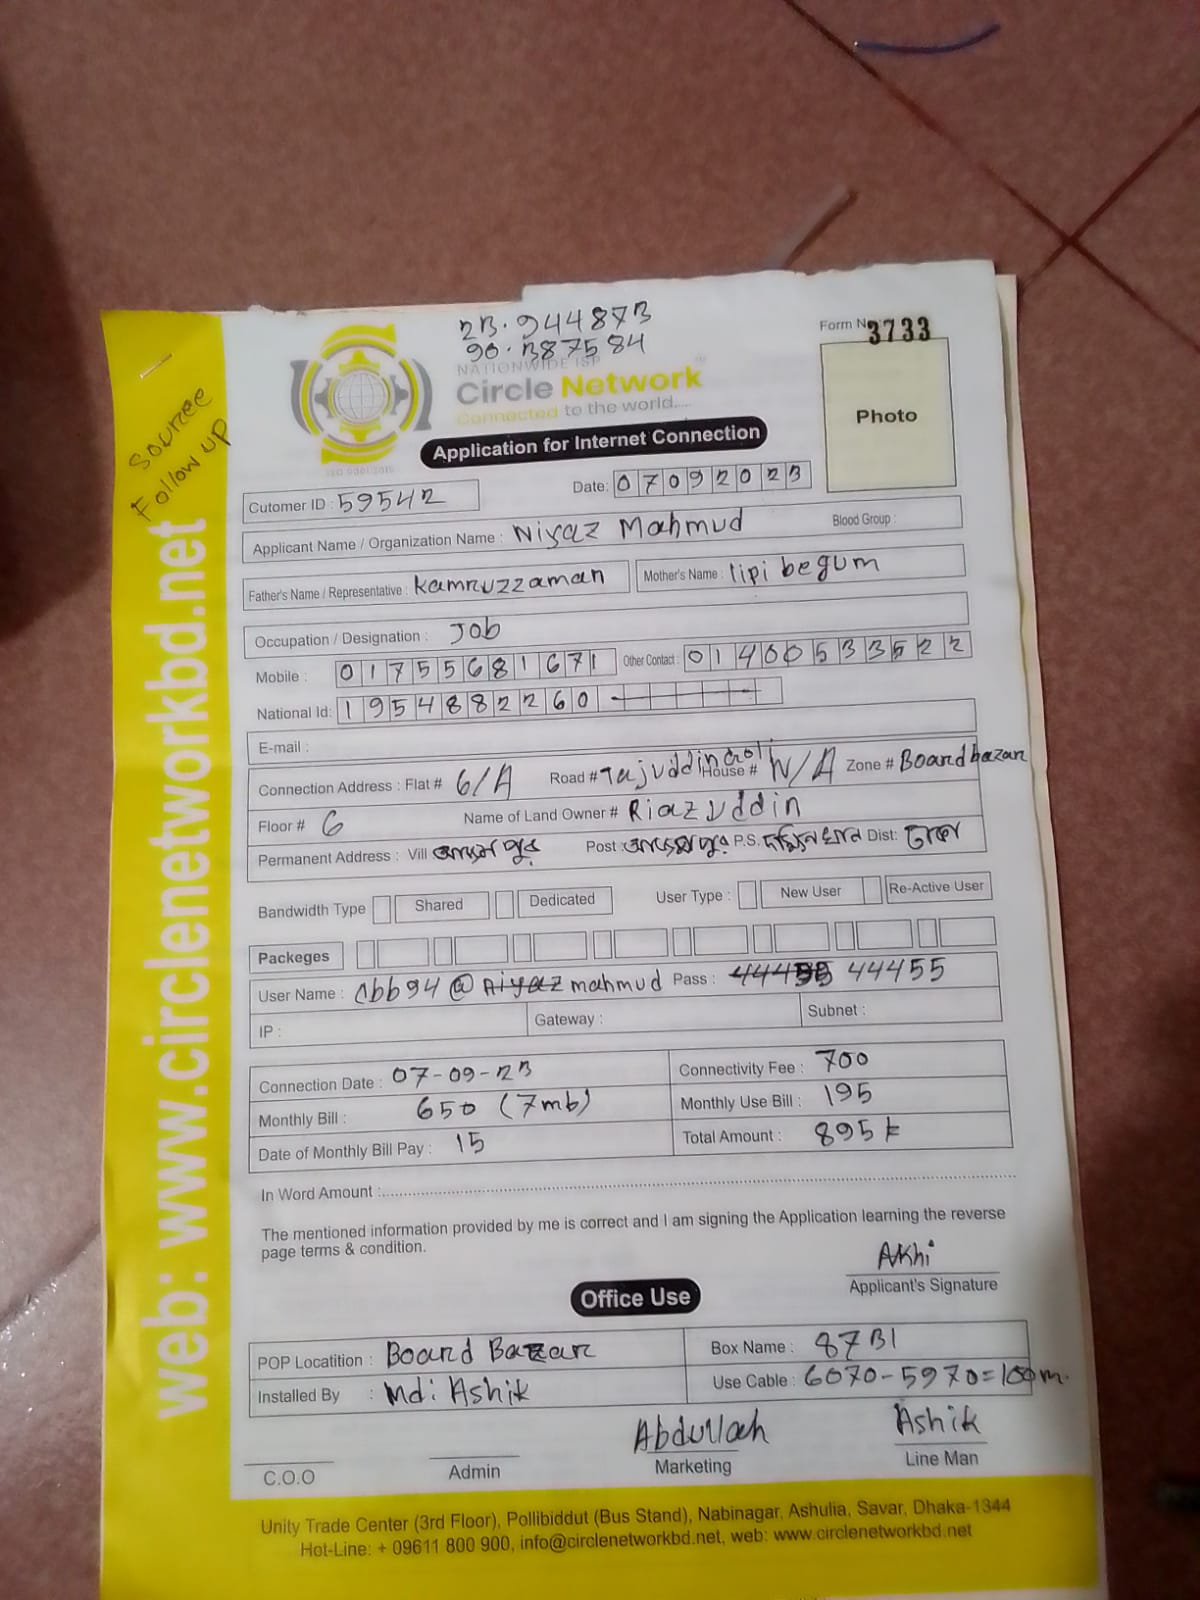 23.944873
90.387584
Form No 3733
NATIONWIDE ISP
Circle Network™
Connected to the world....
Photo
Source
Follow up
Application for Internet Connection
Cutomer ID : 59542
Date: 07092023
Applicant Name / Organization Name : Niyaz Mahmud Blood Group :
Father's Name / Representative : Kamruzzaman Mother's Name : lipi begum
Occupation / Designation : Job
Mobile : 01755681671 Other Contact : 01400533522
National Id: 1954882260
E-mail :
Connection Address : Flat # 6/A Road # Tajuddin House # N/A Zone # Boardbazar
Floor # 6 Name of Land Owner # Riazuddin
Permanent Address : Vill Post : P.S. Dist: ঢাকা
Bandwidth Type Shared Dedicated User Type : New User Re-Active User
Packeges
User Name : cbb94@ mahmud Pass : 44455
IP : Gateway : Subnet :
Connection Date : 07-09-23 Connectivity Fee : 700
Monthly Bill : 650 (7mb) Monthly Use Bill : 195
Date of Monthly Bill Pay : 15 Total Amount : 895
In Word Amount :
The mentioned information provided by me is correct and I am signing the Application learning the reverse
page terms & condition.
Akhi
Applicant's Signature
Office Use
POP Locatition : Board Bazar Box Name : 87B1
Installed By : Md: Ashik Use Cable : 6070-5970=100m.
Abdullah Ashik
C.O.O Admin Marketing Line Man
Unity Trade Center (3rd Floor), Pollibiddut (Bus Stand), Nabinagar, Ashulia, Savar, Dhaka-1344
Hot-Line: + 09611 800 900, info@circlenetworkbd.net, web: www.circlenetworkbd.net
web: www.circlenetworkbd.net